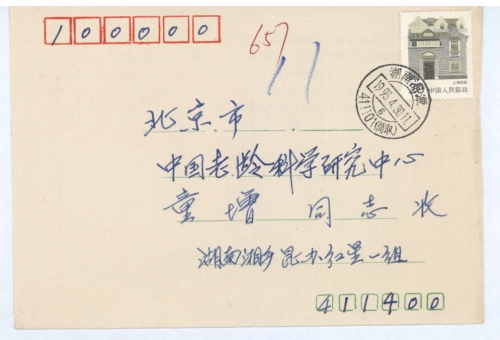 100000
657
11
中国人民邮政
湖南湘潭
1995.4.30.17
6
411101(简取)
北京市
中国老龄科学研究中心
童增 同志 收
湖南湘乡昆办红星一组
411400